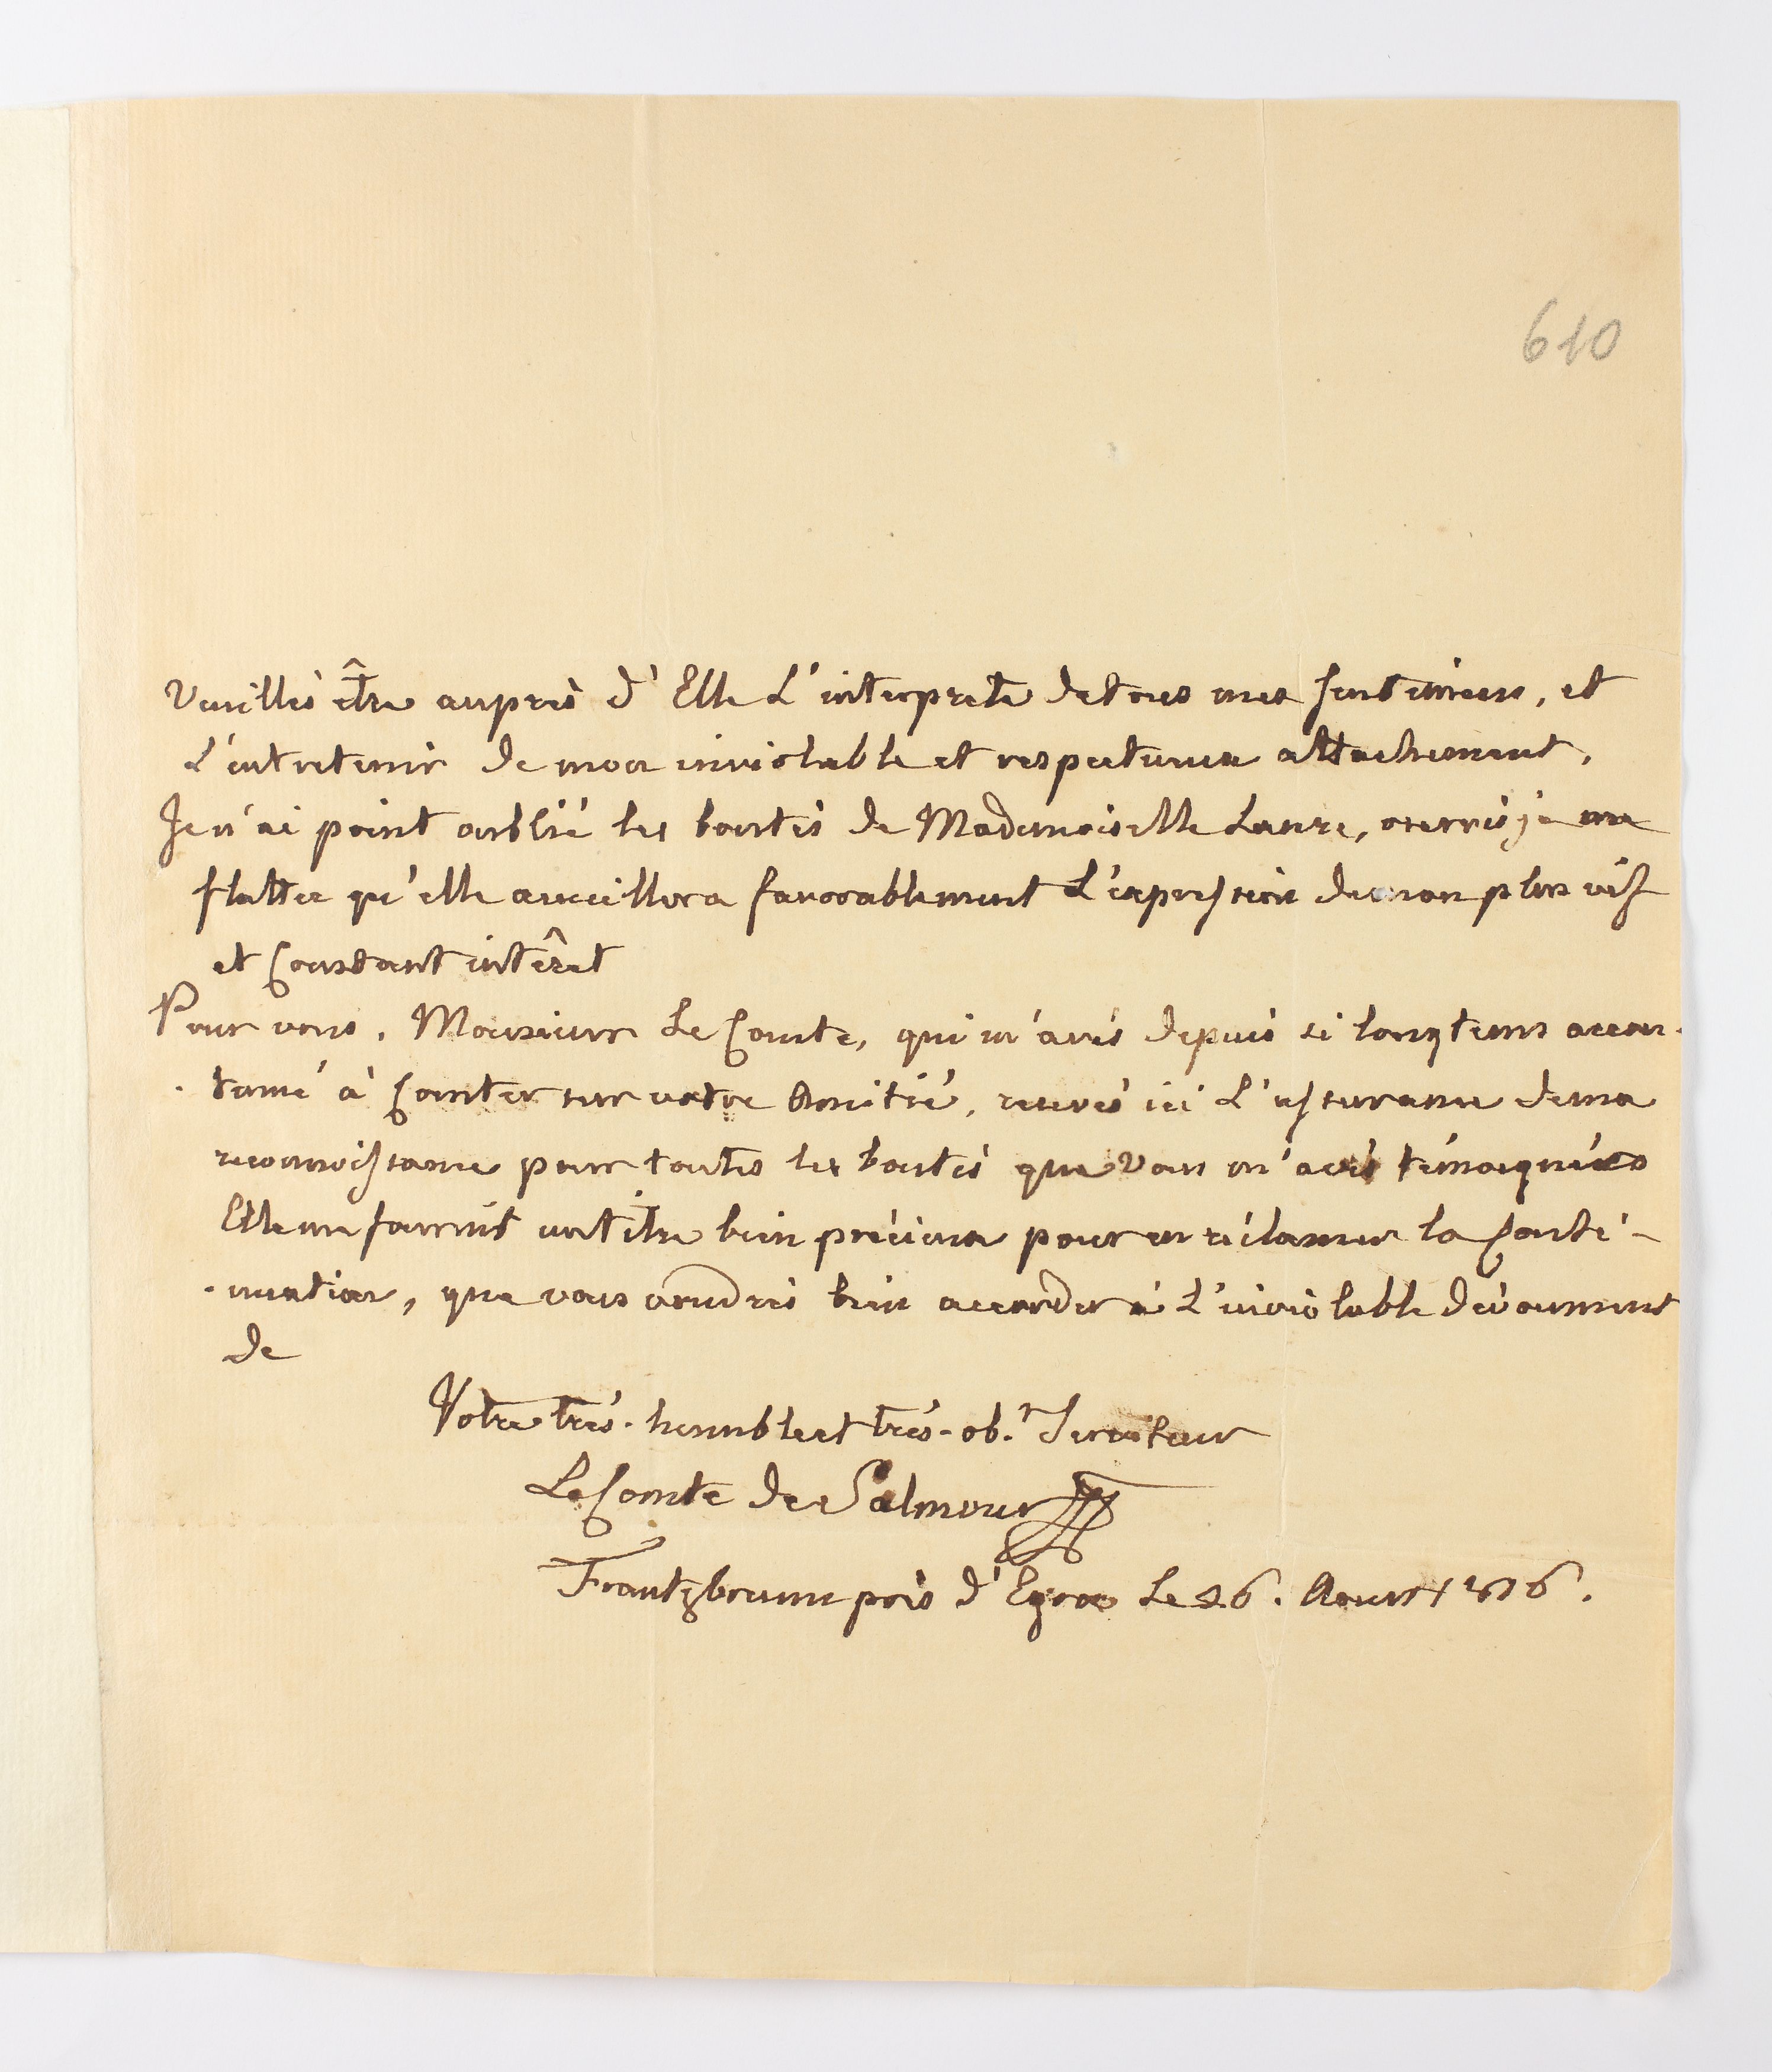 610
Veuillés être auprès d'Elle L'interprete de tous mes sentimens, et
L'entretenir de mon inviolable et respectueux attachement,
Je n'ai point oublié les bontés de Mademoiselle Laure, oserois je me
flatter qu'elle accueillera favorablement L'expression de mon plus vif
et Constant intérêt
Pour vous, Monsieur Le Comte, qui m'avés depuis si longtems accou-
-tumé à Comter sur votre Amitié, recevés ici L'assurance de ma
reconnoissance pour toutes les bontés que vous m'avés témoignées
Elle me fournit un titre bien précieux pour en réclamer la Conti-
-nuation, que vous voudrés bien accorder à L'inviolable dévouement
de
Votre très-humble et très-ob.r Serviteur
Le Comte de Salmour
Frantzbrunn près d'Egra Le 26. Aoust 1816.